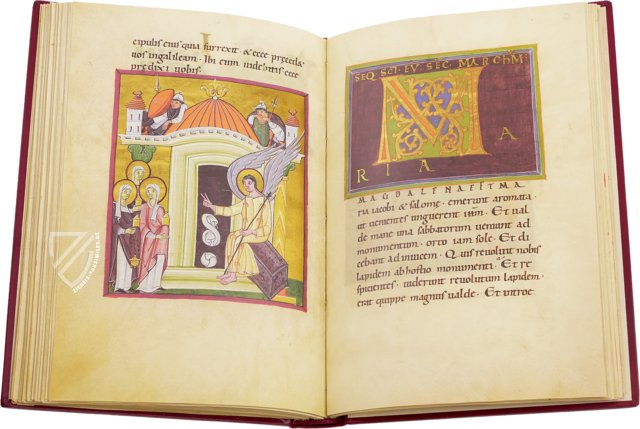 cipulis eius quia surrexit · & ecce precedæ
vos in galileam · Ibi eum videbitis ecce
predixi vobis ·
SEQ SCI EV SEC MARCHM
M
A
RIA
MAGDALENA ET MA
ria iacobi & salome · emerunt aromata ·
ut venientes unguerent ium · Et val
de mane una sabbatorum veniunt ad
monumentum · orto iam sole · Et di
cebant ad invicem · Quis revolvet nobis
lapidem ab hostio monumenti · Et re
spicientes · viderunt revolutum lapidem ·
erat quippe magnus valde · Et introe
ZIEREIS-FAKSIMILES.DE